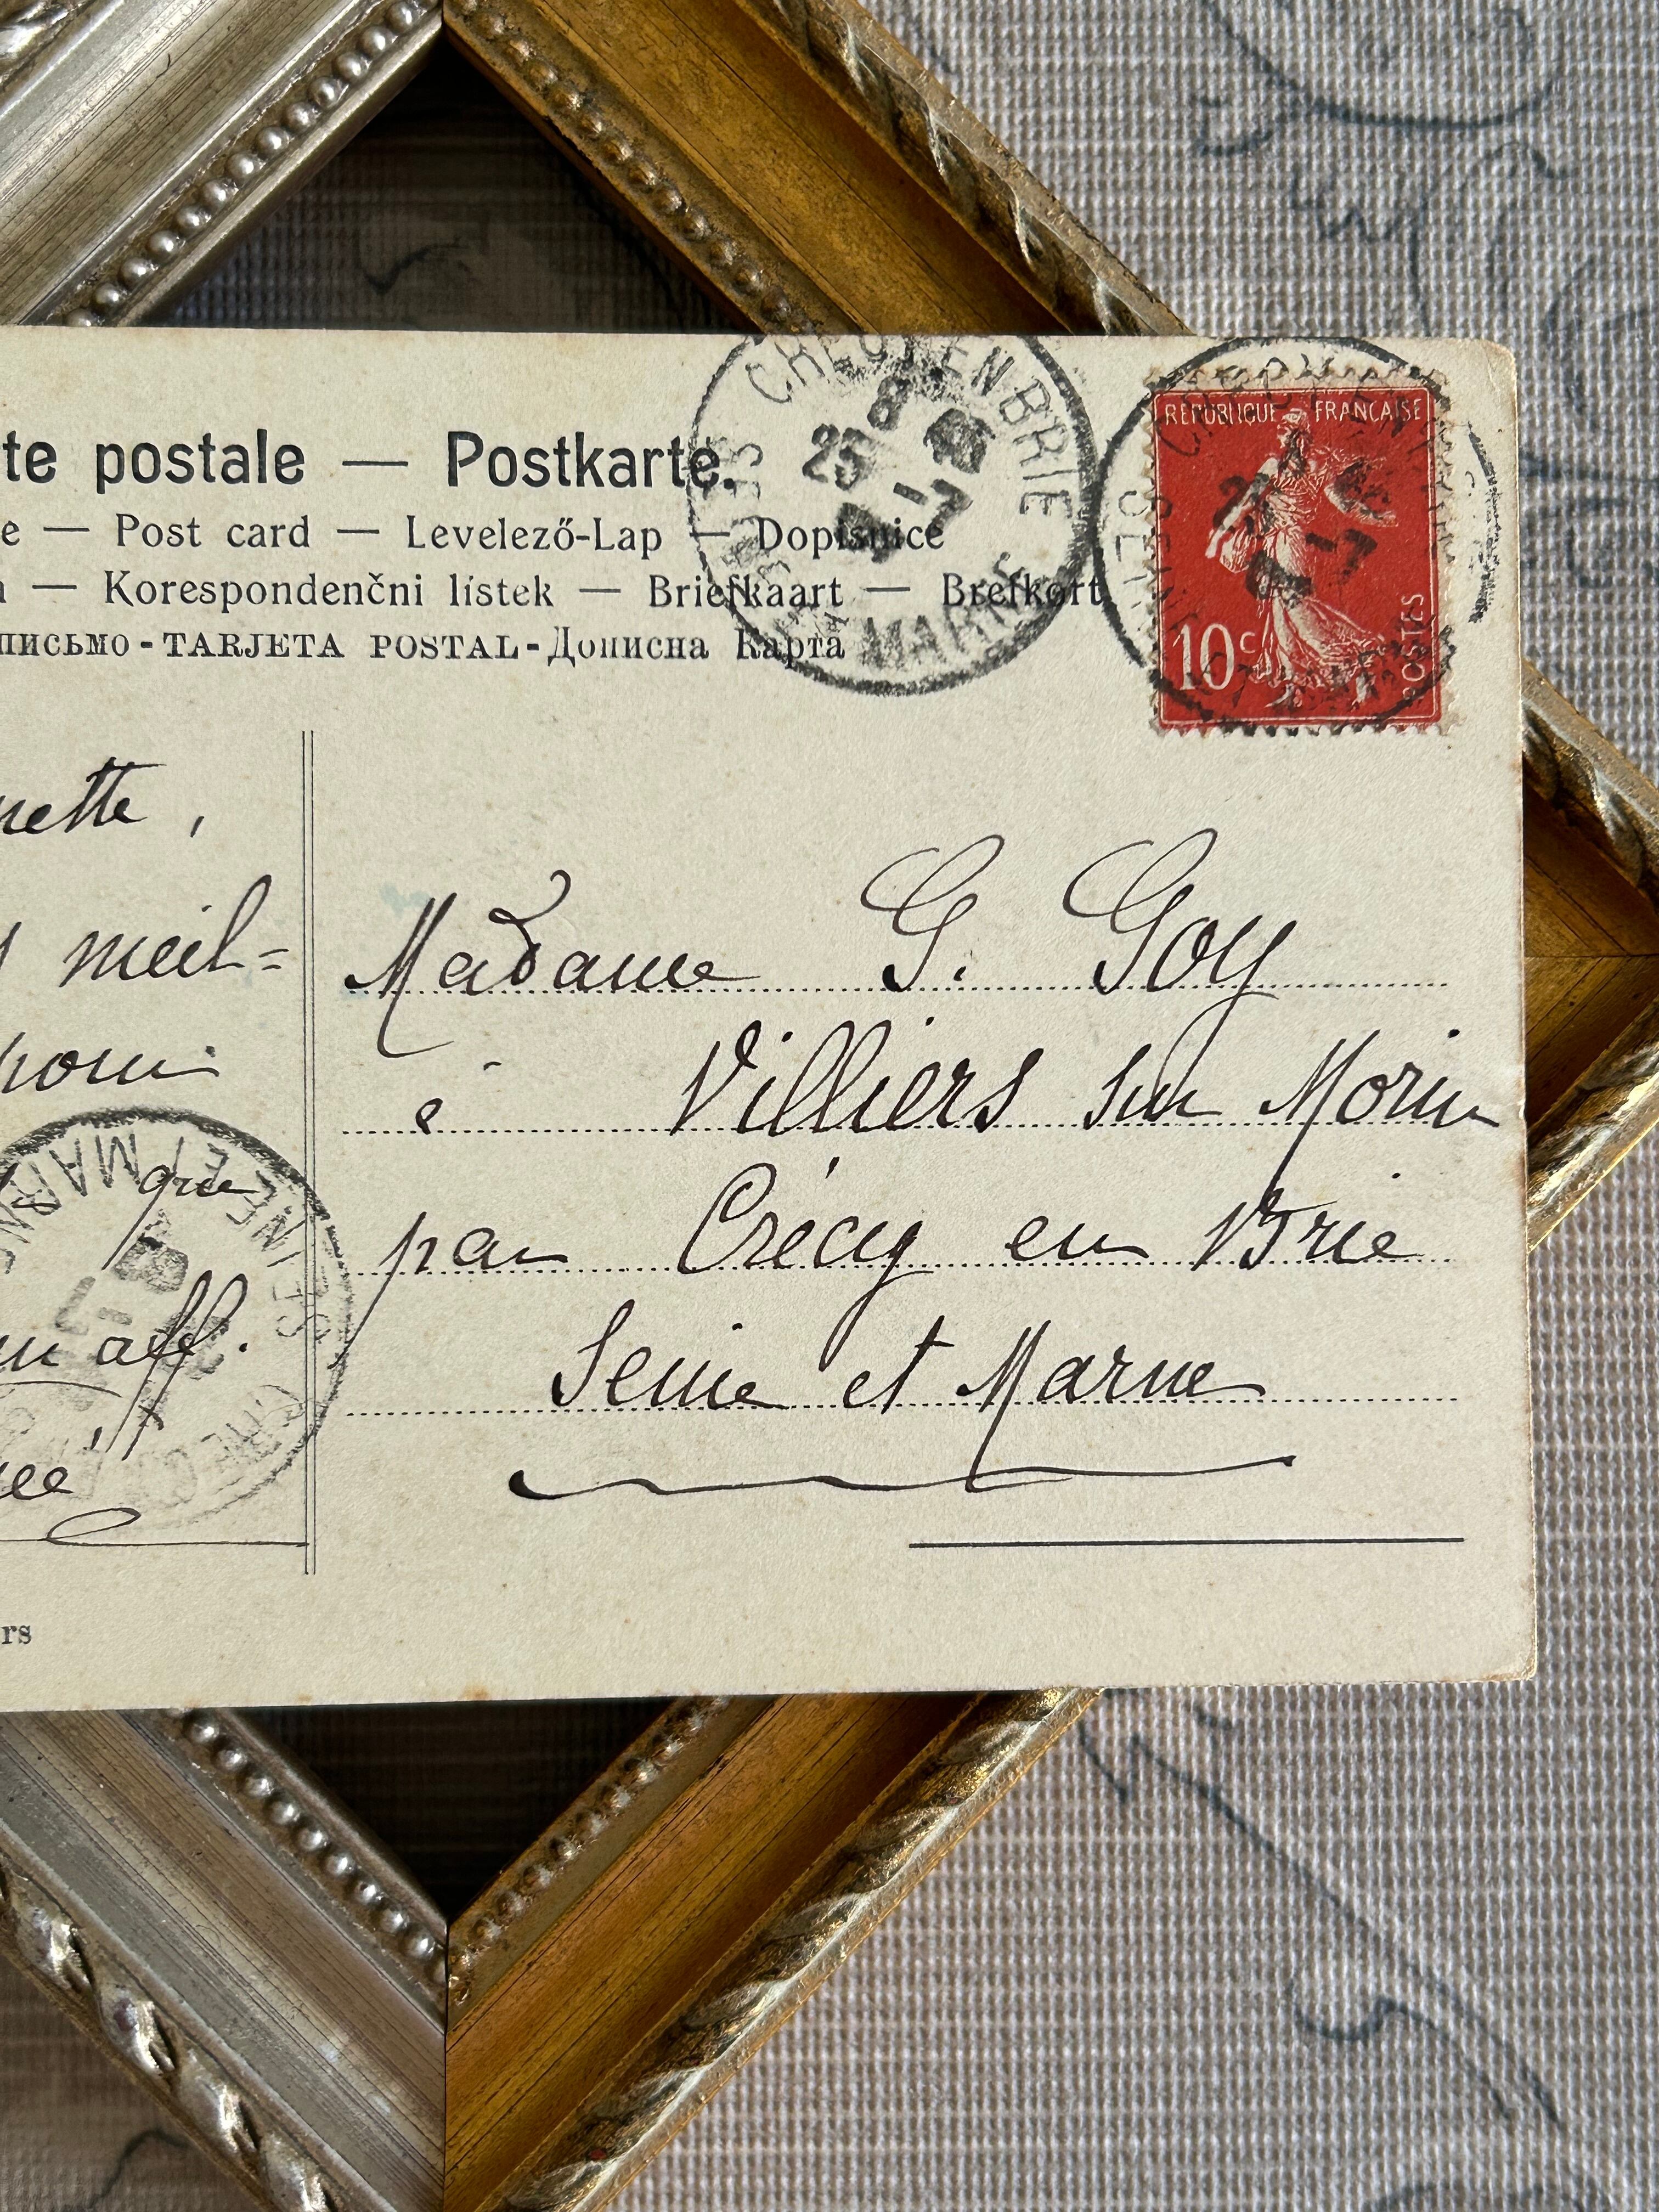 te postale — Postkarte.
e — Post card — Levelező-Lap — Dopisnice
— Korespondenčni lístek — Briefkaart — Brefkort
письмо - TARJETA POSTAL - Дописна Карта
CRECY EN BRIE
8
25 -7
MARNE
REPUBLIQUE FRANÇAISE
10c
POSTES
nette,
meil=
pour
que
aff.
Madame G. Goy
à Villiers sur Morin
par Crécy en Brie
Seine et Marne
SEINE ET MARNE
rs